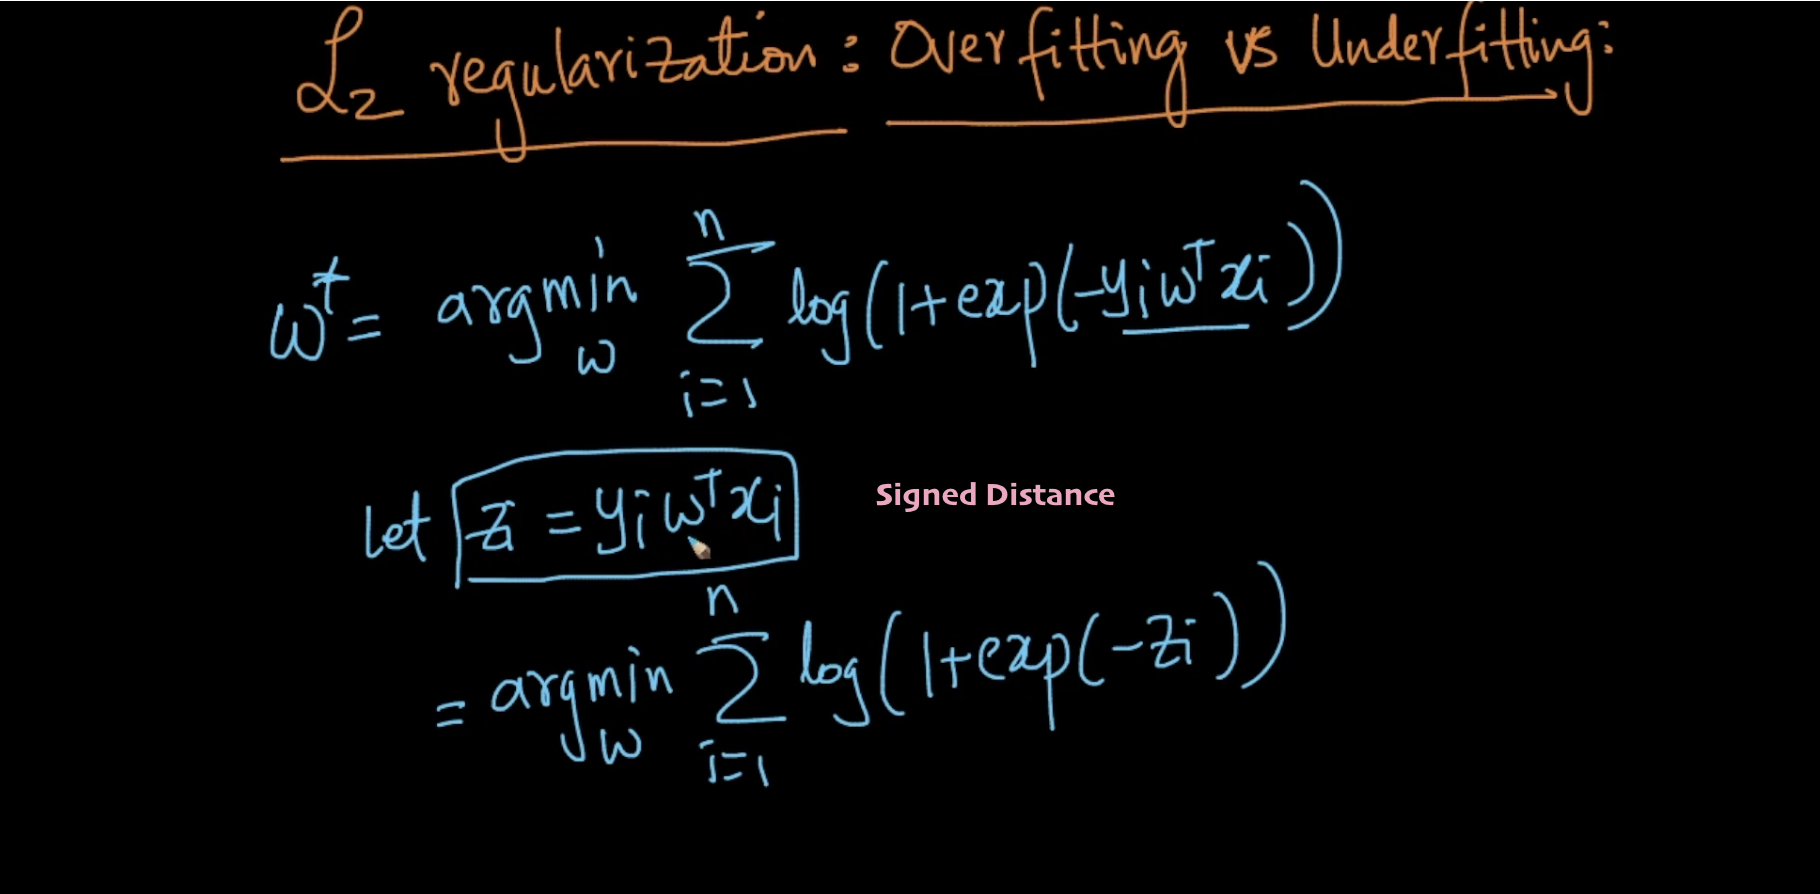 L2 regularization: Overfitting vs Underfitting:
w* = argmin_w Σ_{i=1}^{n} log(1+exp(-yi wᵀxi))
Let zi = yi wᵀxi
Signed Distance
= argmin_w Σ_{i=1}^{n} log(1+exp(-zi))